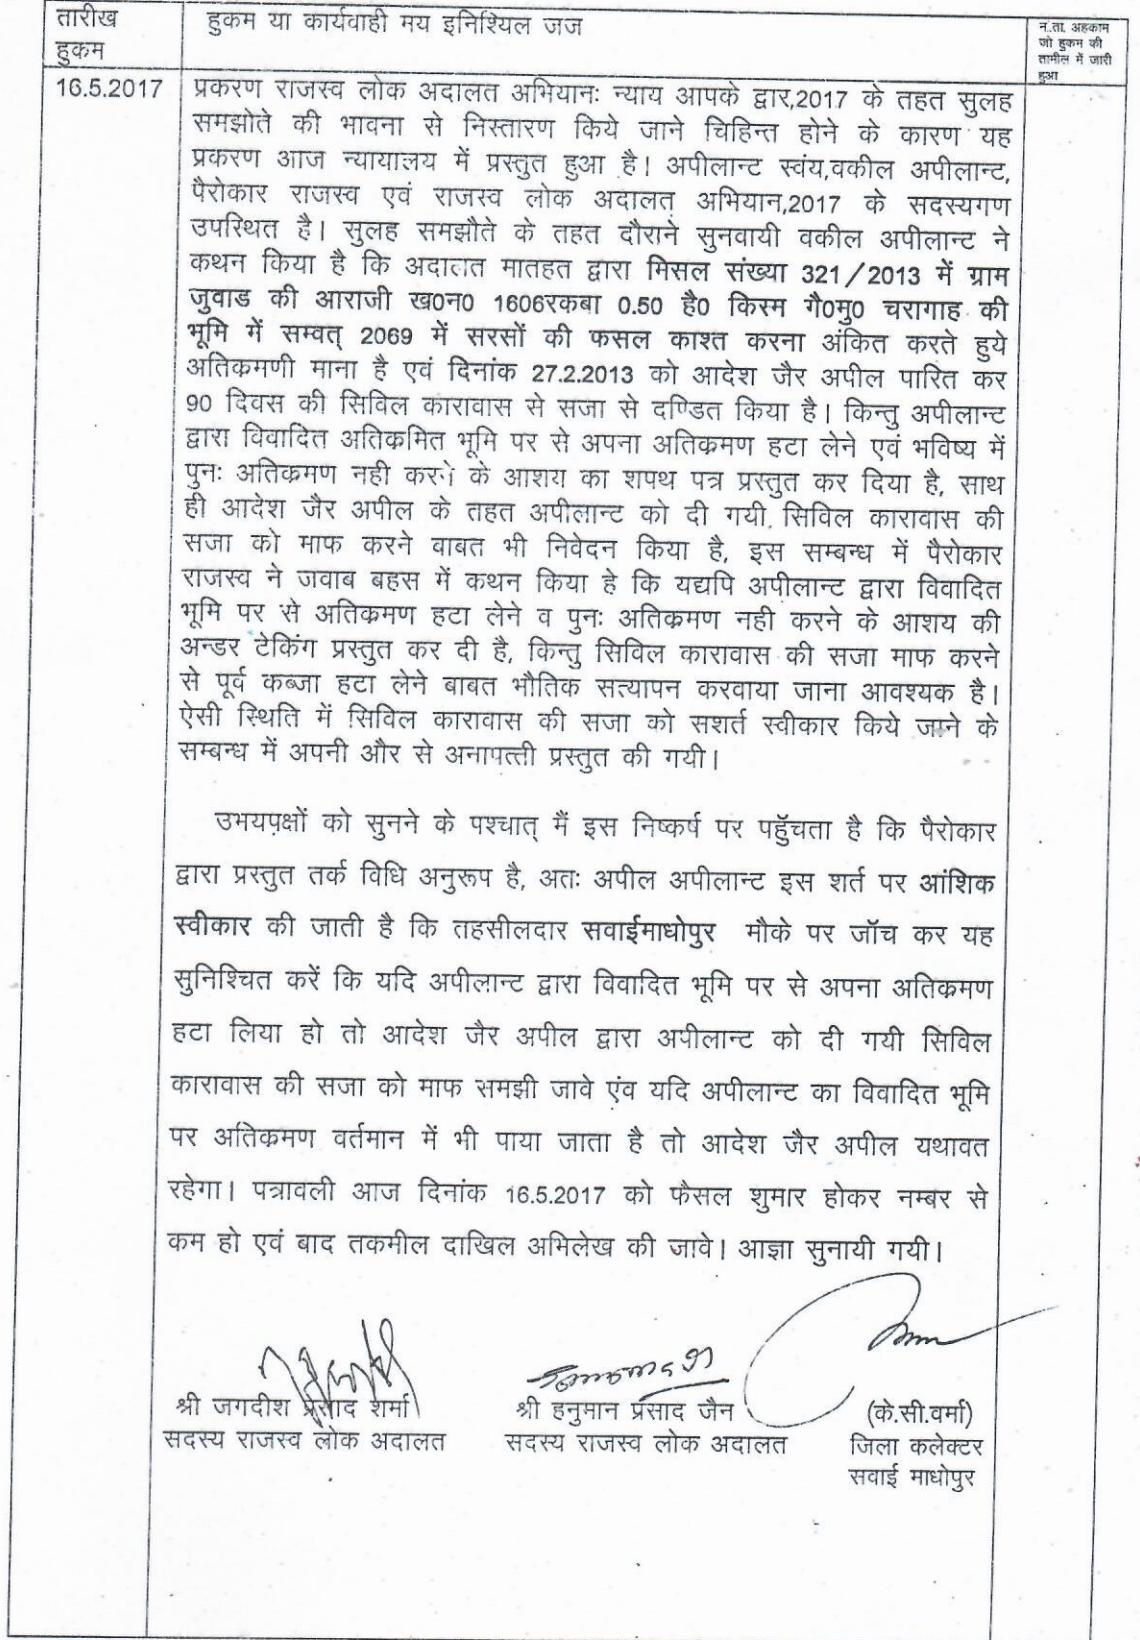 तारीख
हुकम
हुकम या कार्यवाही मय इनिश्यिल जज
न.ता. अहकाम
जो हुकम की
तामील में जारी
हुआ
16.5.2017
प्रकरण राजस्व लोक अदालत अभियानः न्याय आपके द्वार,2017 के तहत सुलह
समझोते की भावना से निस्तारण किये जाने चिहिन्त होने के कारण यह
प्रकरण आज न्यायालय में प्रस्तुत हुआ है। अपीलान्ट स्वंय,वकील अपीलान्ट,
पैरोकार राजस्व एवं राजस्व लोक अदालत अभियान,2017 के सदस्यगण
उपस्थित है। सुलह समझौते के तहत दौराने सुनवायी वकील अपीलान्ट ने
कथन किया है कि अदालत मातहत द्वारा मिसल संख्या 321/2013 में ग्राम
जुवाड की आराजी ख0न0 1606रकबा 0.50 है0 किस्म गै0मु0 चरागाह की
भूमि में सम्वत् 2069 में सरसों की फसल काश्त करना अंकित करते हुये
अतिकमणी माना है एवं दिनांक 27.2.2013 को आदेश जैर अपील पारित कर
90 दिवस की सिविल कारावास से सजा से दण्डित किया है। किन्तु अपीलान्ट
द्वारा विवादित अतिकमित भूमि पर से अपना अतिकमण हटा लेने एवं भविष्य में
पुनः अतिकमण नही करने के आशय का शपथ पत्र प्रस्तुत कर दिया है, साथ
ही आदेश जैर अपील के तहत अपीलान्ट को दी गयी सिविल कारावास की
सजा को माफ करने वाबत भी निवेदन किया है, इस सम्बन्ध में पैरोकार
राजस्व ने जवाब बहस में कथन किया हे कि यद्यपि अपीलान्ट द्वारा विवादित
भूमि पर से अतिकमण हटा लेने व पुनः अतिकमण नही करने के आशय की
अन्डर टेकिंग प्रस्तुत कर दी है, किन्तु सिविल कारावास की सजा माफ करने
से पूर्व कब्जा हटा लेने बाबत भौतिक सत्यापन करवाया जाना आवश्यक है।
ऐसी स्थिति में सिविल कारावास की सजा को सशर्त स्वीकार किये जाने के
सम्बन्ध में अपनी और से अनापत्ती प्रस्तुत की गयी।
उभयपक्षों को सुनने के पश्चात् मैं इस निष्कर्ष पर पहुँचता है कि पैरोकार
द्वारा प्रस्तुत तर्क विधि अनुरूप है, अतः अपील अपीलान्ट इस शर्त पर आंशिक
स्वीकार की जाती है कि तहसीलदार सवाईमाधोपुर मौके पर जॉच कर यह
सुनिश्चित करें कि यदि अपीलान्ट द्वारा विवादित भूमि पर से अपना अतिकमण
हटा लिया हो तो आदेश जैर अपील द्वारा अपीलान्ट को दी गयी सिविल
कारावास की सजा को माफ समझी जावे एंव यदि अपीलान्ट का विवादित भूमि
पर अतिकमण वर्तमान में भी पाया जाता है तो आदेश जैर अपील यथावत
रहेगा। पत्रावली आज दिनांक 16.5.2017 को फैसल शुमार होकर नम्बर से
कम हो एवं बाद तकमील दाखिल अभिलेख की जावे। आज्ञा सुनायी गयी।
श्री जगदीश प्रसाद शर्मा
सदस्य राजस्व लोक अदालत
श्री हनुमान प्रसाद जैन
सदस्य राजस्व लोक अदालत
(के.सी.वर्मा)
जिला कलेक्टर
सवाई माधोपुर